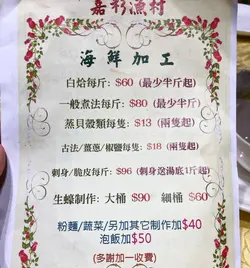 嘉衫漁村
海鮮加工
白焓每斤：$60 (最少半斤起)
一般煮法每斤：$80 (最少半斤起)
蒸貝殼類每隻：$13 (兩隻起)
古法/薑蔥/椒鹽每隻：$18 (兩隻起)
刺身/脆皮每斤：$96 (刺身送湯底1斤起)
生蠔制作：大桶 $90 細桶 $60
粉麵/蔬菜/另加其它制作加$40
泡飯加$50
(多謝加一收費)